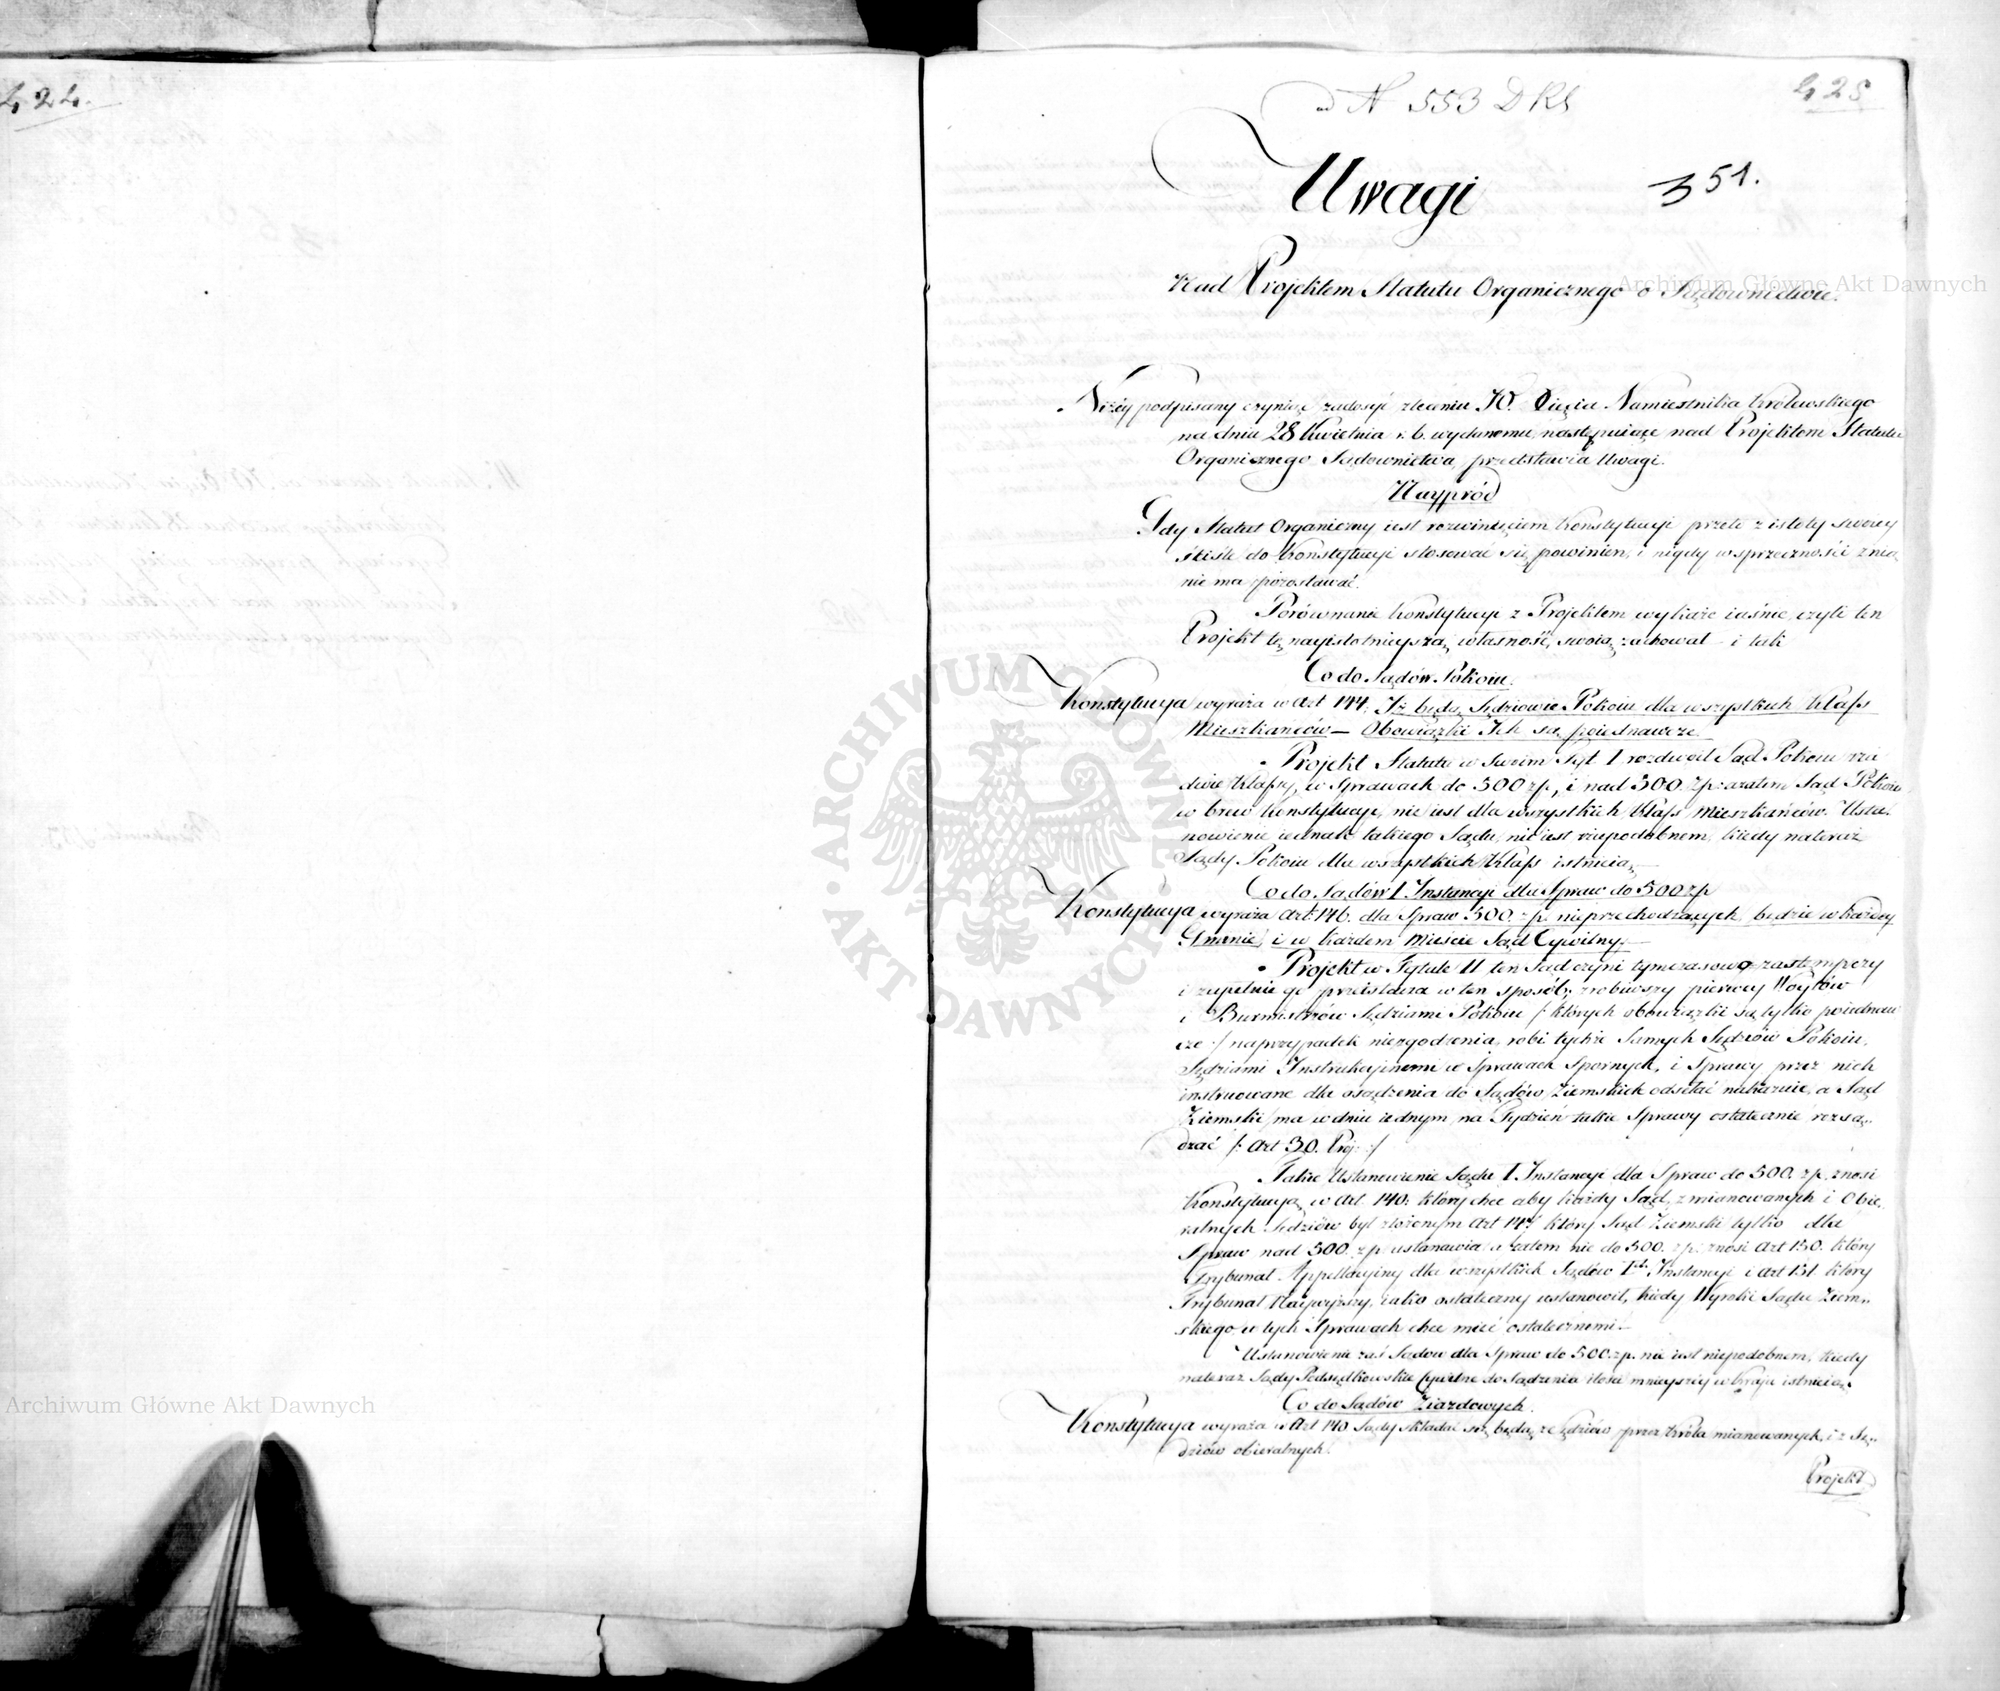 424.
ad N 553 DKS
425
351.
Uwagi
Nad Projektem Statutu Organicznego o Sądownictwie.
Niżey podpisany czyniąc zadosyć zleceniu JO. Xięcia Namiestnika Królewskiego
na dniu 28 Kwietnia r. b. wydanemu, następuiące nad Projektem Statutu
Organicznego Sądownictwa przedstawia Uwagi.
Nayprzód
Gdy Statut Organiczny iest rozwinięciem Konstytucyi przeto z istoty swoiey
ściśle do Konstytucyi stosować się powinien, i nigdy w sprzeczności z nią
nie ma pozostawać.
Porównanie Konstytucyi z Projektem wykaże iaśnie, czyli ten
Projekt tę nayistotnieyszą własność swoią zachował – i tak
Co do Sądów Pokoiu.
Konstytucya wyraża w Art 144. Iż będą Sędziowie Pokoiu dla wszystkich Klass
Mieszkańców – Obowiązki Ich są poiednawcze.
Projekt Statutu w Swoim Tyt. I rozdwoił Sąd Pokoiu na
dwie Klassy, w Sprawach do 500 zp, i nad 500. zp: a zatem Sąd Pokoiu
w brew Konstytucyi, nie iest dla wszystkich Klass Mieszkańców. Usta-
nowienie iednak takiego Sądu, nie iest niepodobnem, kiedy na teraz
Sądy Pokoiu dla wszystkich Klass istnieią. –
Co do Sądów I Instancyi dla Spraw do 500 zp
Konstytucya wyraża Art: 146. dla Spraw 500. zp. nieprzechodzących, będzie w każdey
Gminie, i w każdem Mieście Sąd Cywilny. –
Projekt w Tytule II ten Sąd czyni tymczasowo zastępczy
i zupełnie go przeistacza w ten sposób; zrobiwszy pierwey Woytów
i Burmistrzów Sędziami Pokoiu /: których obowiązki są tylko poiednaw
cze :/ na przypadek niezgodzenia, robi tychże Samych Sędziów Pokoiu,
Sędziami Instrukcyinemi w Sprawach Spornych, i Sprawy przez nich
instruowane dla osądzenia do Sądów Ziemskich odsełać nakazuie, a Sąd
Ziemski ma w dniu iednym na Tydzień takie Sprawy ostatecznie rozsą-
dzać /: Art 30. Proj: :/
Takie Ustanowienie Sądu I Instancyi dla Spraw do 500. zp. znosi
Konstytucyą w Art. 140. który chce aby każdy Sąd, z mianowanych i Obie-
ralnych Sędziów był złożonym Art 147 który Sąd Ziemski tylko dla
Spraw nad 500. zp ustanawia a zatem nie do 500. zp: znosi Art 150. który
Trybunał Appellacyiny dla wszystkich Sądów Iéi Instancyi i Art 151. który
Trybunał Naywyższy, iako ostateczny ustanowił, kiedy Wyroki Sądu Ziem-
skiego w tych Sprawach chce mieć ostatecznemi. –
Ustanowienie zaś Sądow dla Spraw do 500. zp. nie iest niepodobnem, kiedy
na teraz Sądy Podsędkowskie Cywilne do Sądzenia ilości mnieyszéy w Kraju istnieią.
Co do Sądów Ziazdowych.
Konstytucya wyraża w Art 140 Sądy składać się będą z Sędziów przez Króla mianowanych, i z Sę-
dziów obieralnych.
Projekt
Archiwum Główne Akt Dawnych
Archiwum Główne Akt Dawnych
ARCHIWUM GŁÓWNE AKT DAWNYCH